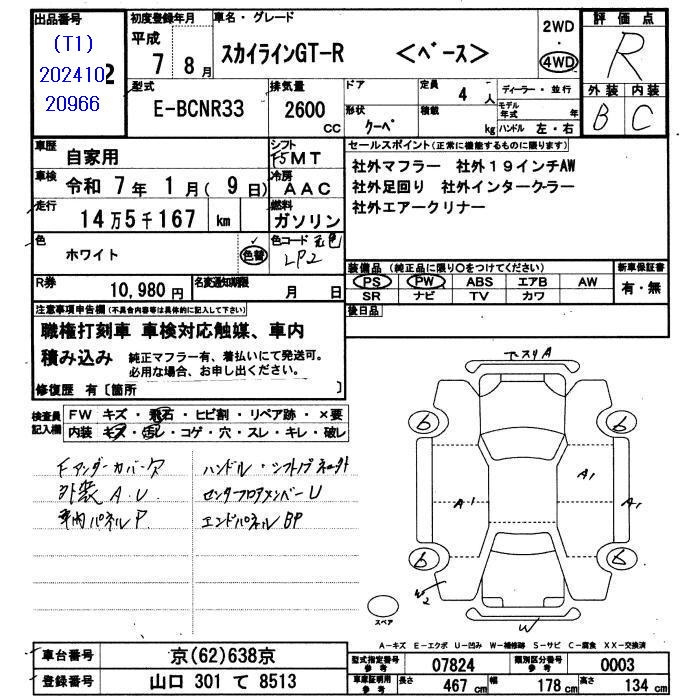 出品番号
(T1)
202410
20966
初度登録年月
平成 7年 8月
車名・グレード
スカイラインGT-R <ベース>
2WD
・
4WD
評価点
R
外装 内装
B C
型式
E-BCNR33
排気量
2600 CC
ドア
形状 クーペ
定員 4人
積載 kg
ディーラー・並行
モデル年式 年
ハンドル 左・右
車歴 自家用
シフト F5MT
車検 令和 7年 1月( 9日)
冷房 AAC
走行 14万5千167 km
燃料 ガソリン
色 ホワイト 色替
色コード 元色
LP2
セールスポイント(正常に機能するものに限ります)
社外マフラー 社外19インチAW
社外足回り 社外インタークーラー
社外エアークリナー
装備品(純正品に限り○をつけてください)
PS PW ABS エアB AW
SR ナビ TV カワ
新車保証書
有・無
R券 10,980円
名変通知期限 月 日
後日品
注意事項申告欄(不具合内容等は具体的に記入して下さい)
職権打刻車 車検対応触媒、車内
積み込み 純正マフラー有、着払いにて発送可。
必用な場合、お申し出ください。
修復歴 有〔箇所 〕
検査員記入欄
FW キズ・飛石・ヒビ割・リペア跡・×要
内装 キズ・汚レ・コゲ・穴・スレ・キレ・破レ
Fアンダーカバー欠
外装 A.U.
車内パネルP.
センタフロアメンバーU
エンドパネルBP
6 6
A1 A1 A1
6 6
W2
W
スペア
A-キズ E-エクボ U-凹み W-補修跡 S-サビ C-腐食 XX-交換済
車台番号 京(62)638京
登録番号 山口 301 て 8513
型式指定番号 参考 07824
類別区分番号 参考 0003
車庫証明用 参考 長さ 467 cm 幅 178 cm 高さ 134 cm